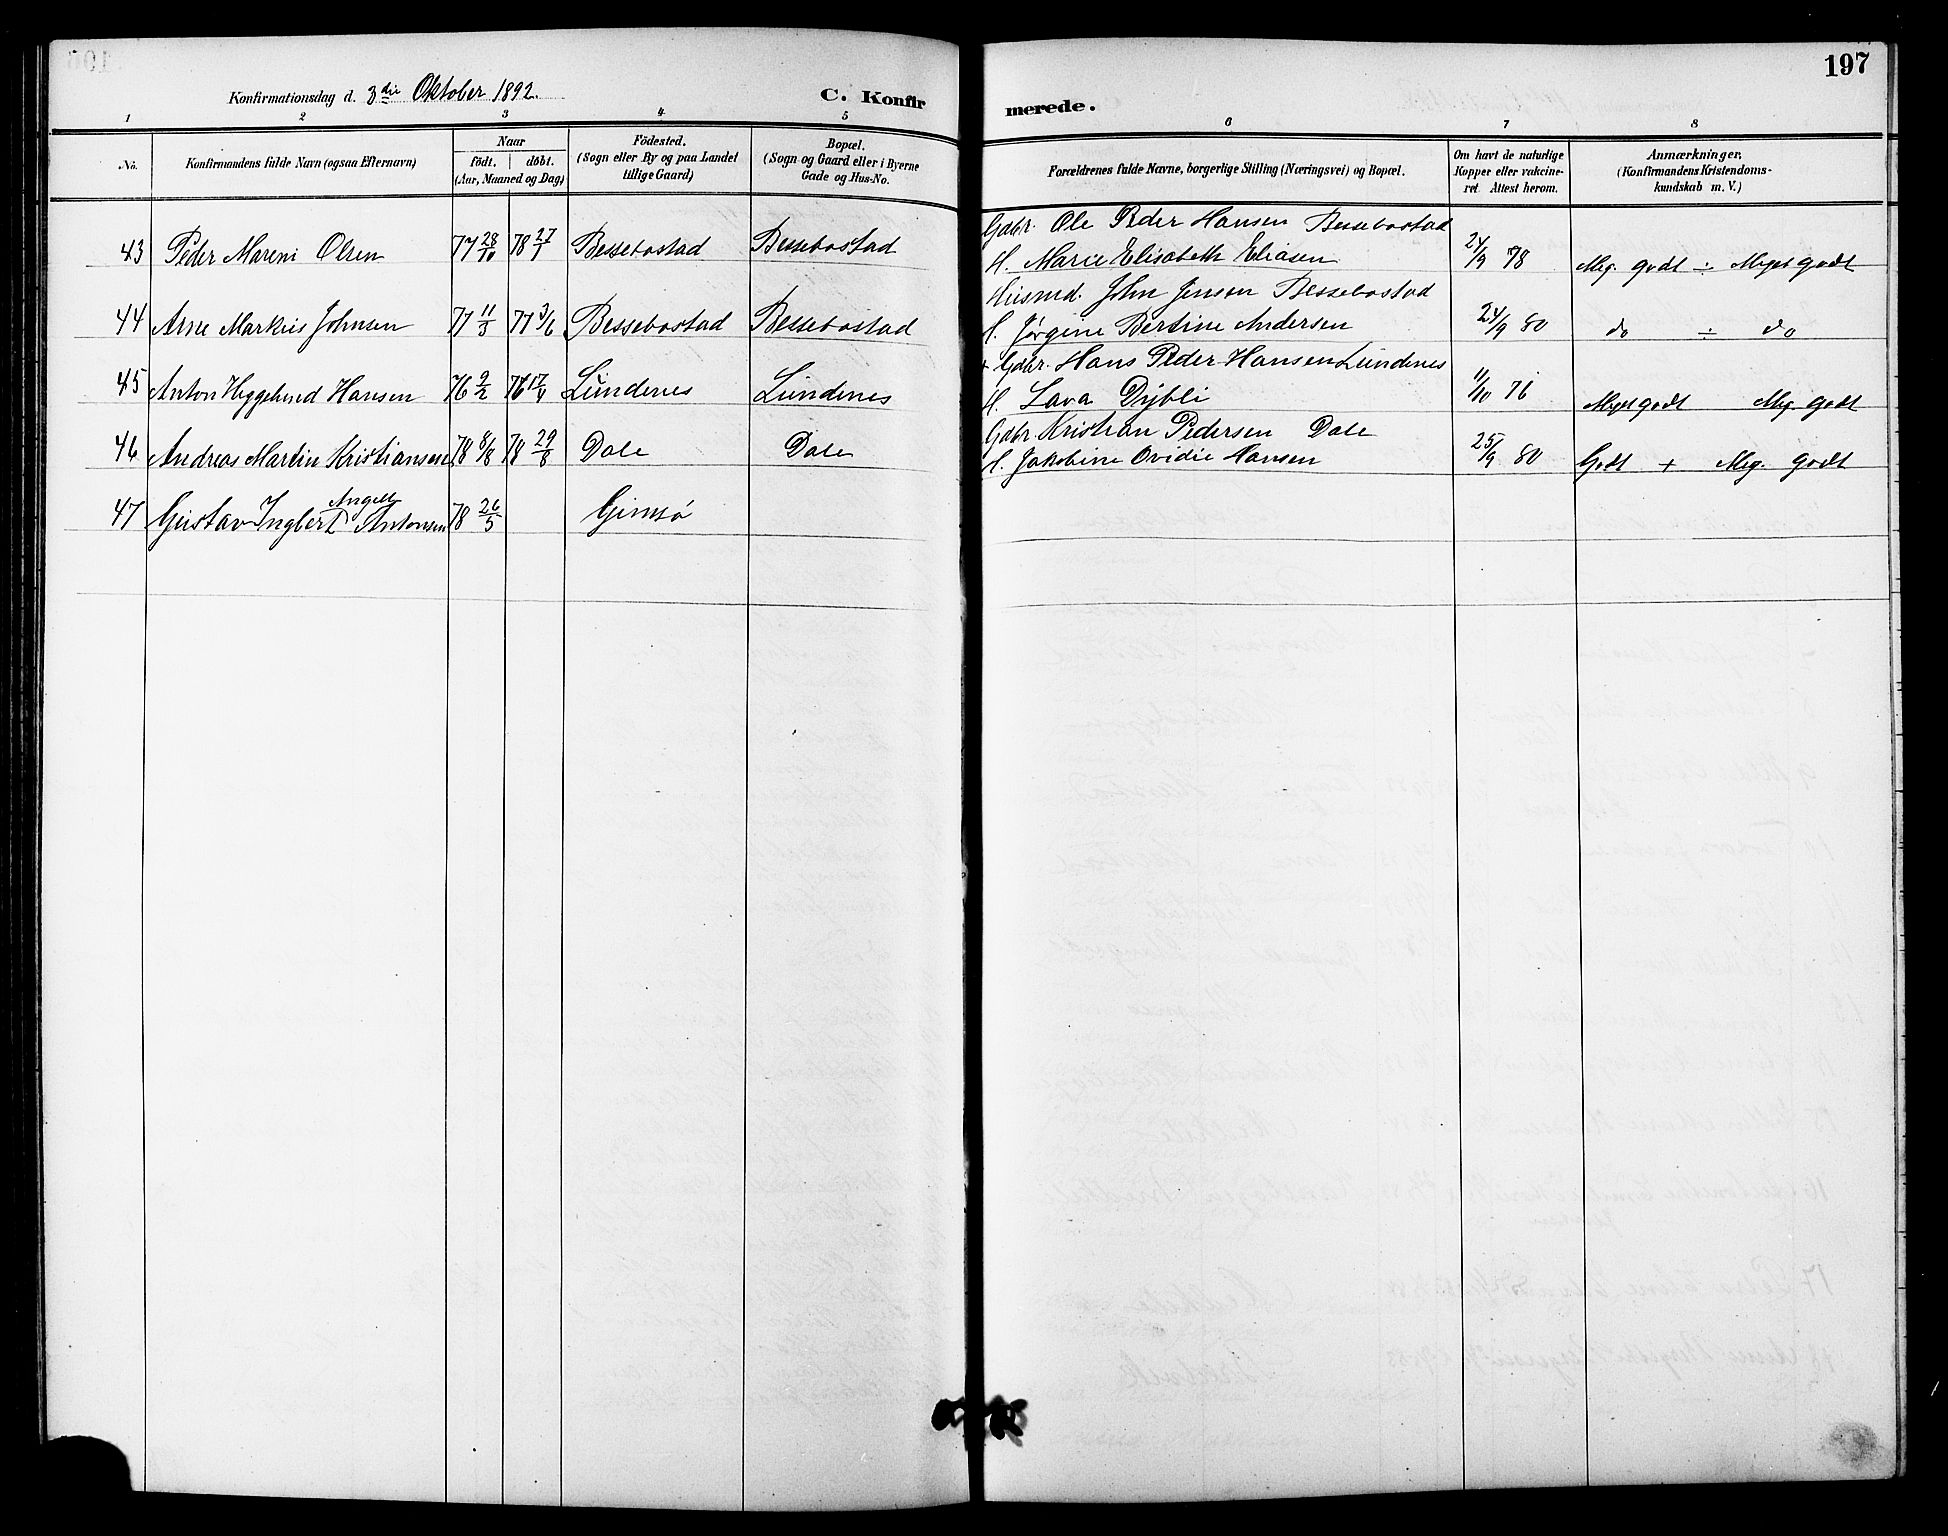 197
Konfirmationsdag d. 3die Oktober 1892.
C. Konfirmerede.
1 2 3 4 5 6 7 8
No.
Konfirmandens fulde Navn (ogsaa Efternavn)
Naar
födt. döbt.
(Aar, Maaned og Dag)
Födested.
(Sogn eller By og paa Landet
tillige Gaard)
Bopæl.
(Sogn og Gaard eller i Byerne
Gade og Hus-No.
Forældrenes fulde Navne, borgerlige Stilling (Næringsvei) og Bopæl.
Om havt de naturlige
Kopper eller vakcine-
ret. Attest herom.
Anmærkninger,
(Konfirmandens Kristendoms-
kundskab m. V.)
Gdbr. Ole Peder Hansen Bessebostad
43 Peder Mareni Olsen 77 28/10 78 27/1 Bessebostad Bessebostad H. Marie Elisabeth Eliasen 24/9 78 Meg. godt ÷ Meget godt
Husmd. John Jensen Bessebostad
44 Arne Markus Johnsen 77 11/3 77 3/6 Bessebostad Bessebostad H. Jørgine Bertine Andersen 24/9 80 do ÷ do
+ Gdbr. Hans Peder Hansen Lundenes
45 Anton Heggelund Hansen 76 9/2 76 17/4 Lundenes Lundenes H. Lava Dybli 11/10 76 Meget godt Meg. godt
Gdbr Kristian Pedersen Dale
46 Andreas Martin Kristiansen 78 8/8 78 29/8 Dale Dale H. Jakobine Ovidie Hansen 25/9 80 Godt + Meg. godt
Angell
47 Gustav Ingbert Antonsen 78 26/5 Gimsø